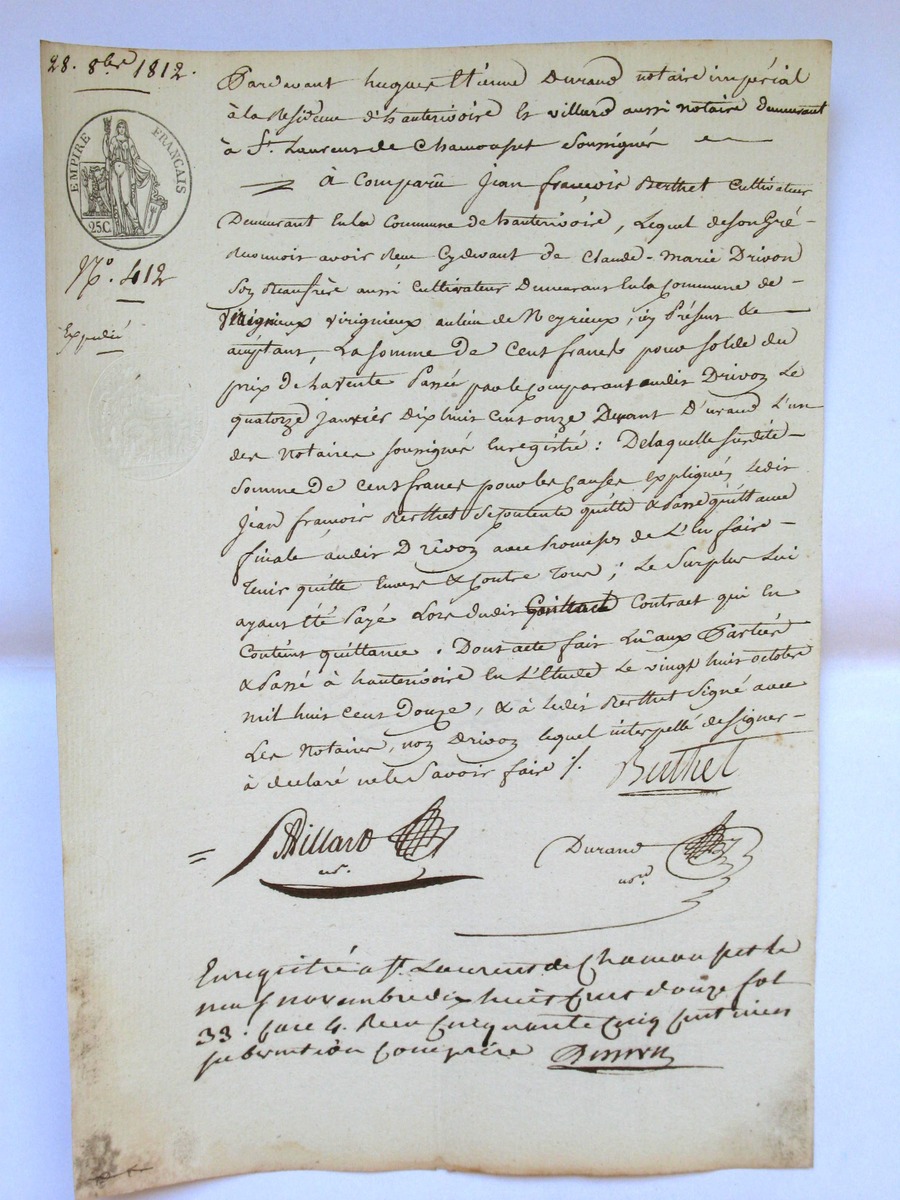 28. 8bre 1812.
EMPIRE FRANÇAIS
25C
No. 412
Expedié
Pardevant hugues Etienne Durand notaire impérial
à la Residence d'hauterivoire Et Villard aussi notaire Demeurant
à St. Laurent de Chamousset Soussignés
à Comparu Jean françois Berthet Cultivateur
Demeurant En la Commune de hauterivoire, Lequel de son Gré
Reconnoit avoir Reçu Cydevant de Claude-Marie Drivon
Son Beaufrère aussi Cultivateur Demeurant En la Commune de
Virignieux au lieu de Neyrieux, icy Présent &
acceptant, La somme De Cent francs pour solde du
prix de la vente Passée par le Comparant audit Drivon Le
quatorze Janvier Dix huit Cent onze Devant Durand L'un
des Notaires soussignés Enregistré : De laquelle susdite
Somme De Cent francs pour les Causes Expliquées Ledit
Jean françois Berthet Se Contente quitte & Passe quittance
finale audit Drivon avec Promesse de L'En faire
Tenir quitte Envers & Contre Tous ; Le Surplus Lui
ayant Eté Payé Lors dudit Contract qui En
Contient quittance. Dont acte fait Lu aux Parties
& Passé à hauterivoire En L'Etude Le vingt huit octobre
mil huit Cent Douze, & à Ledit Berthet Signé avec
Les Notaires, non Drivon Lequel interpellé de signer
à declaré ne le Savoir faire /.
Berthet
Villard
nre.
Durand
nore
Enregistré a St. Laurent de Chamousset le
neuf novembre dix huit Cent douze fol
33. Case 4. Reçu Cinquante Cinq Centimes
subvention Comprise